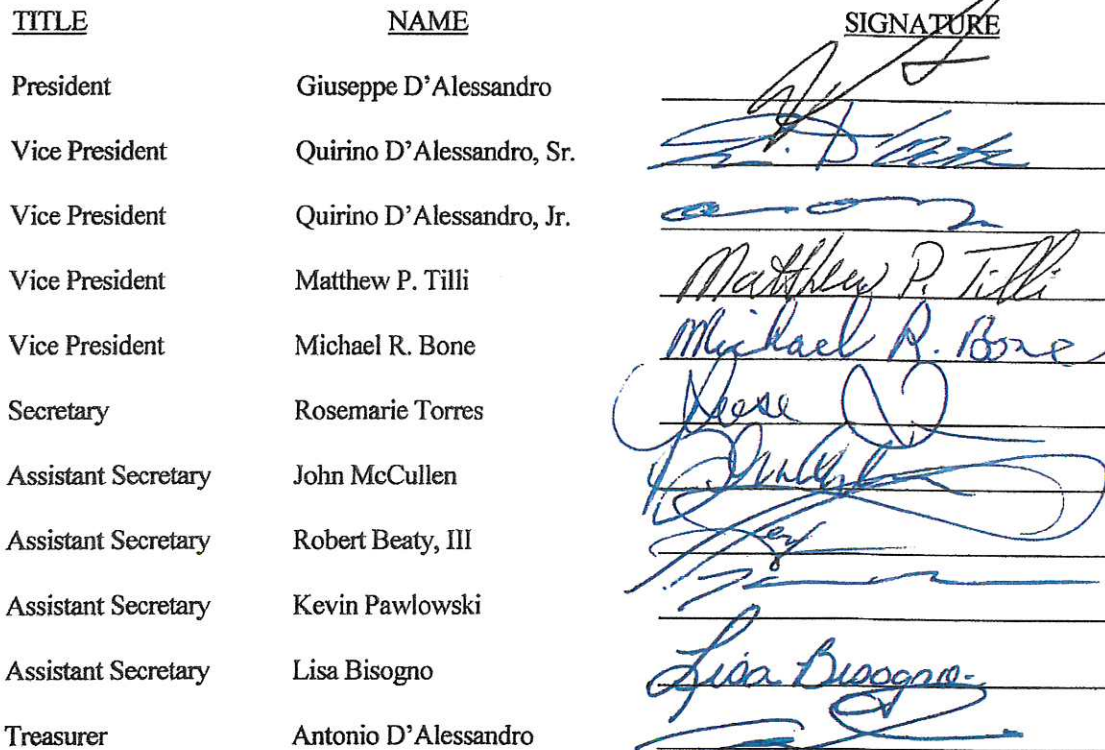 TITLE NAME SIGNATURE
President Giuseppe D'Alessandro
Vice President Quirino D'Alessandro, Sr.
Vice President Quirino D'Alessandro, Jr.
Vice President Matthew P. Tilli Matthew P. Tilli
Vice President Michael R. Bone Michael R. Bone
Secretary Rosemarie Torres
Assistant Secretary John McCullen
Assistant Secretary Robert Beaty, III
Assistant Secretary Kevin Pawlowski
Assistant Secretary Lisa Bisogno Lisa Bisogno
Treasurer Antonio D'Alessandro